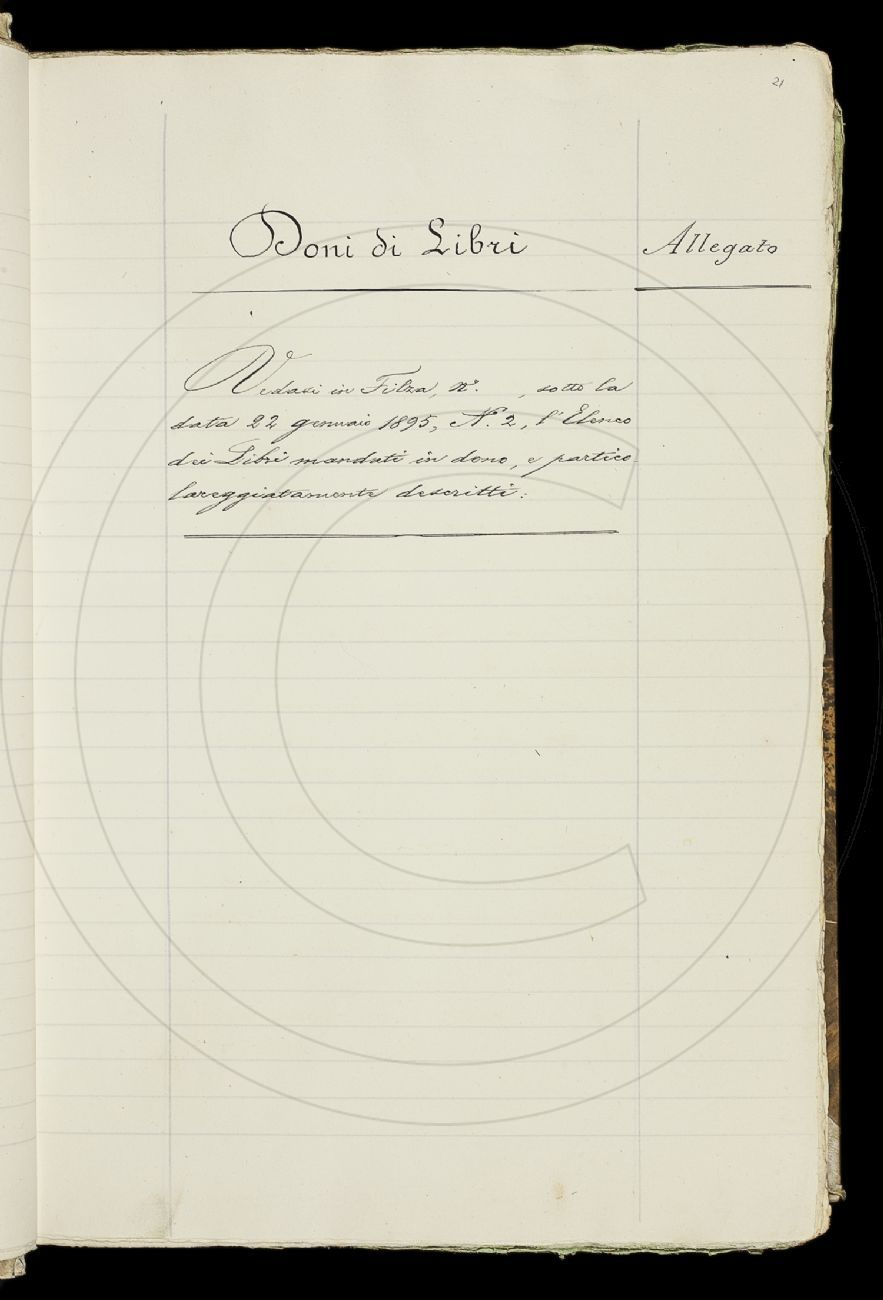 21
Doni di Libri
Allegato
Vedasi in Filza, n°. , sotto la
data 22 gennaio 1895, N. 2, l'Elenco
dei Libri mandati in dono, e partico-
lareggiatamente descritti: